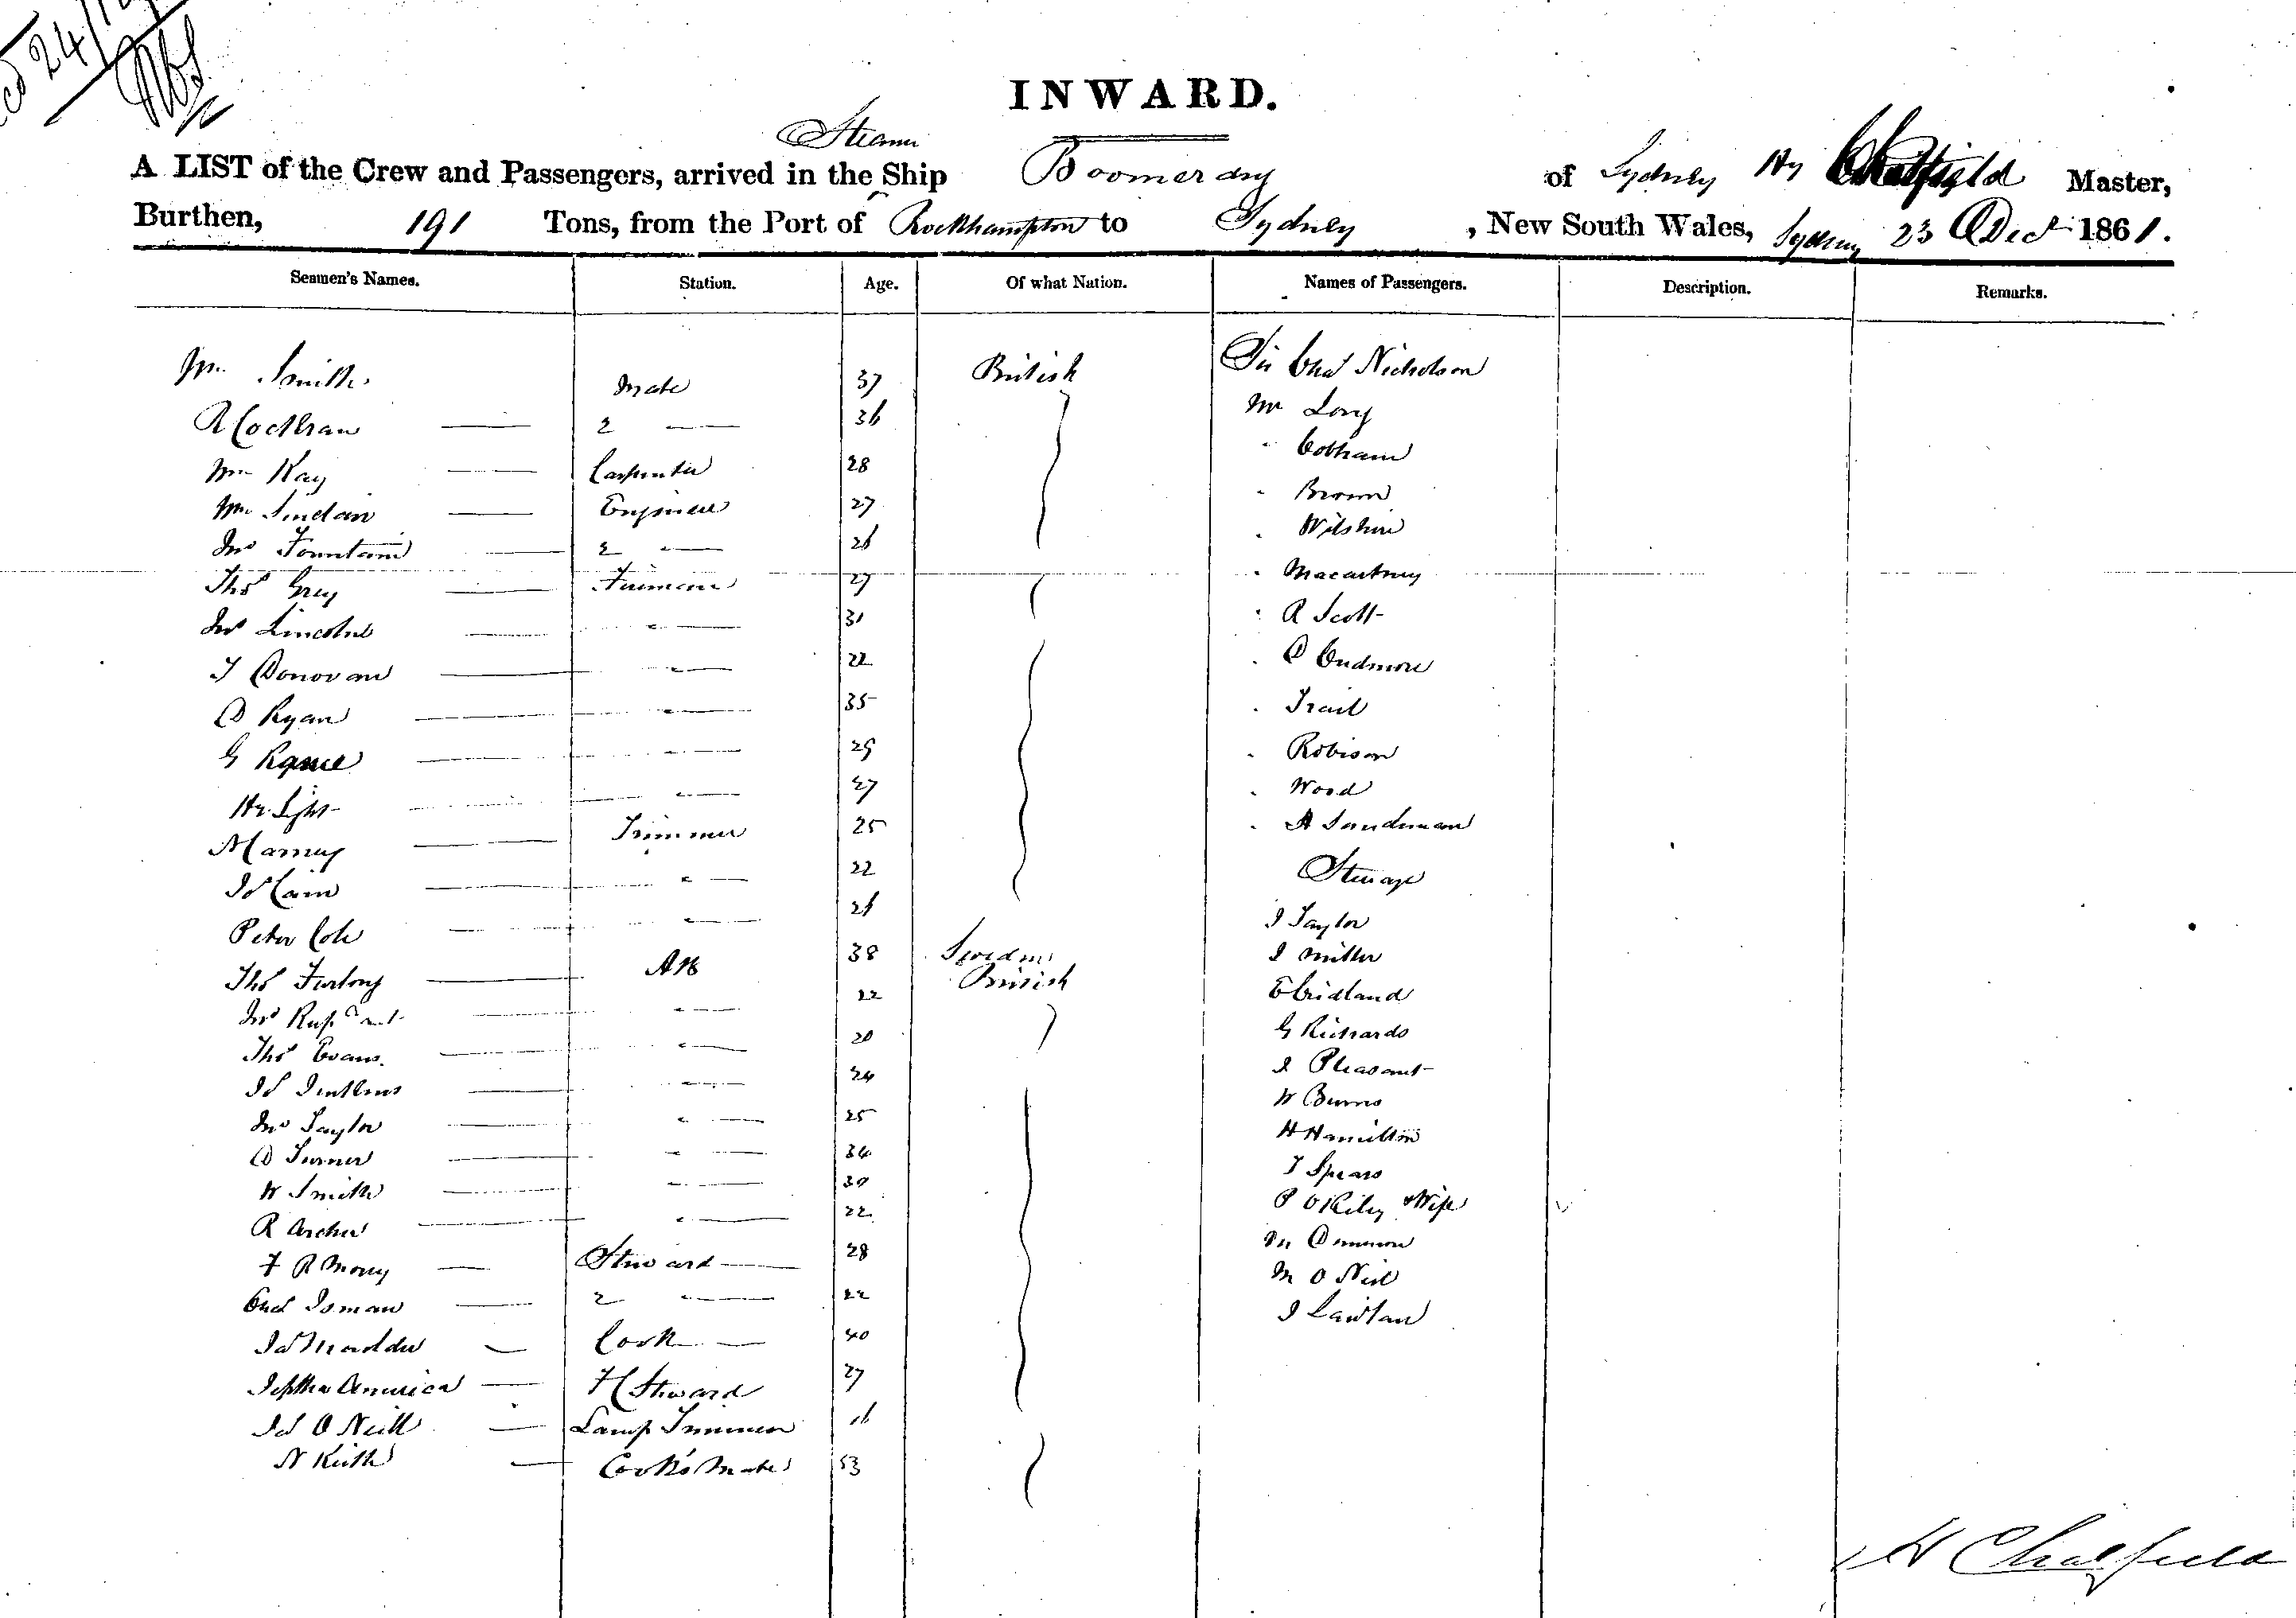 24/12
INWARD.
Steamer
A LIST of the Crew and Passengers, arrived in the Ship Boomerang of Sydney Hy Chatfield Master,
Burthen, 191 Tons, from the Port of Rockhampton to Sydney , New South Wales, Sydney 23 Decr 1861.
Seamen's Names. Station. Age. Of what Nation. Names of Passengers. Description. Remarks.
Wm Smith Mate 37 British Sir Chas Nicholson
R Cochran 2 " 36 Mr Long
Wm Kay Carpenter 28 " Cobham
Wm Sinclair Engineer 27 " Brown
Jno Fountain 2 " 26 " Wilshire
Thos Grey Fireman 27 " Macartney
Jno Lincoln " 31 " R Scott
T Donovan " 22 " D Cudmore
D Ryan " 35 " Trail
G " 29 " Robison
Hy Light " 27 " Wood
Trimmer 25 " A Sandeman
Js Cain " 22 Steerage
Peter Cole " 26 J Taylor
Thos Furlong AB 38 Sweden J Miller
Jno " 22 British E Cridland
Thos Evans " 20 G Richards
Js Jenkins " 24 J Pleasant
Jno Taylor " 25 W Burns
D Turner " 34 H Hamilton
W Smith " 30 T Spears
R Archer " 22 P O Riley & Wife
F R Morey Steward 28
Chas Isman 2 " 22 M O Neil
Js Cook 40 J Lawlan
Jeptha America F C Steward 27
Js O Neill Lamp Trimmer 16
N Keith Cook's Mate 53
H Chatfield